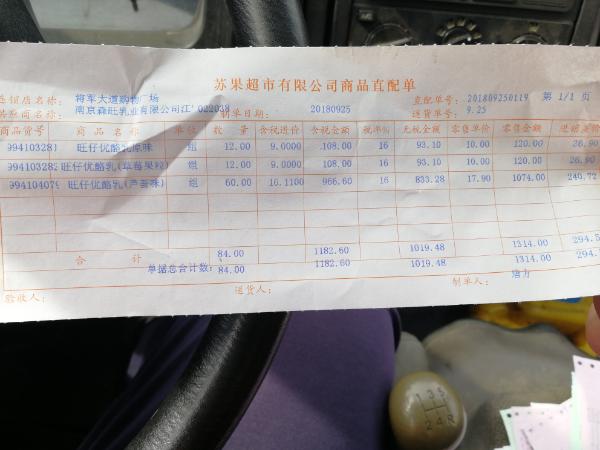 苏果超市有限公司商品直配单
店名称: 将军大道购物广场
商名称: 南京森旺乳业有限公司江 022038 制单日期: 20180925
直配单号: 201809250119 第 1/1 页
送货单号: 9.25
商品货号 商品名称 单位 数量 含税进价 含税金额 税率% 无税金额 零售单价 零售金额 进销差价
99410328 旺仔优酪乳原味 组 12.00 9.0000 108.00 16 93.10 10.00 120.00 26.90
99410328 旺仔优酪乳(草莓果粒) 组 12.00 9.0000 108.00 16 93.10 10.00 120.00 26.90
99410407 旺仔优酪乳(芦荟味) 组 60.00 16.1100 966.60 16 833.28 17.90 1074.00 240.72
合计 84.00 1182.60 1019.48 1314.00 294.5
单据总合计数: 84.00 1182.60 1019.48 1314.00 294.
验收人: 送货人: 制单人:
1 3 5
2 4 R